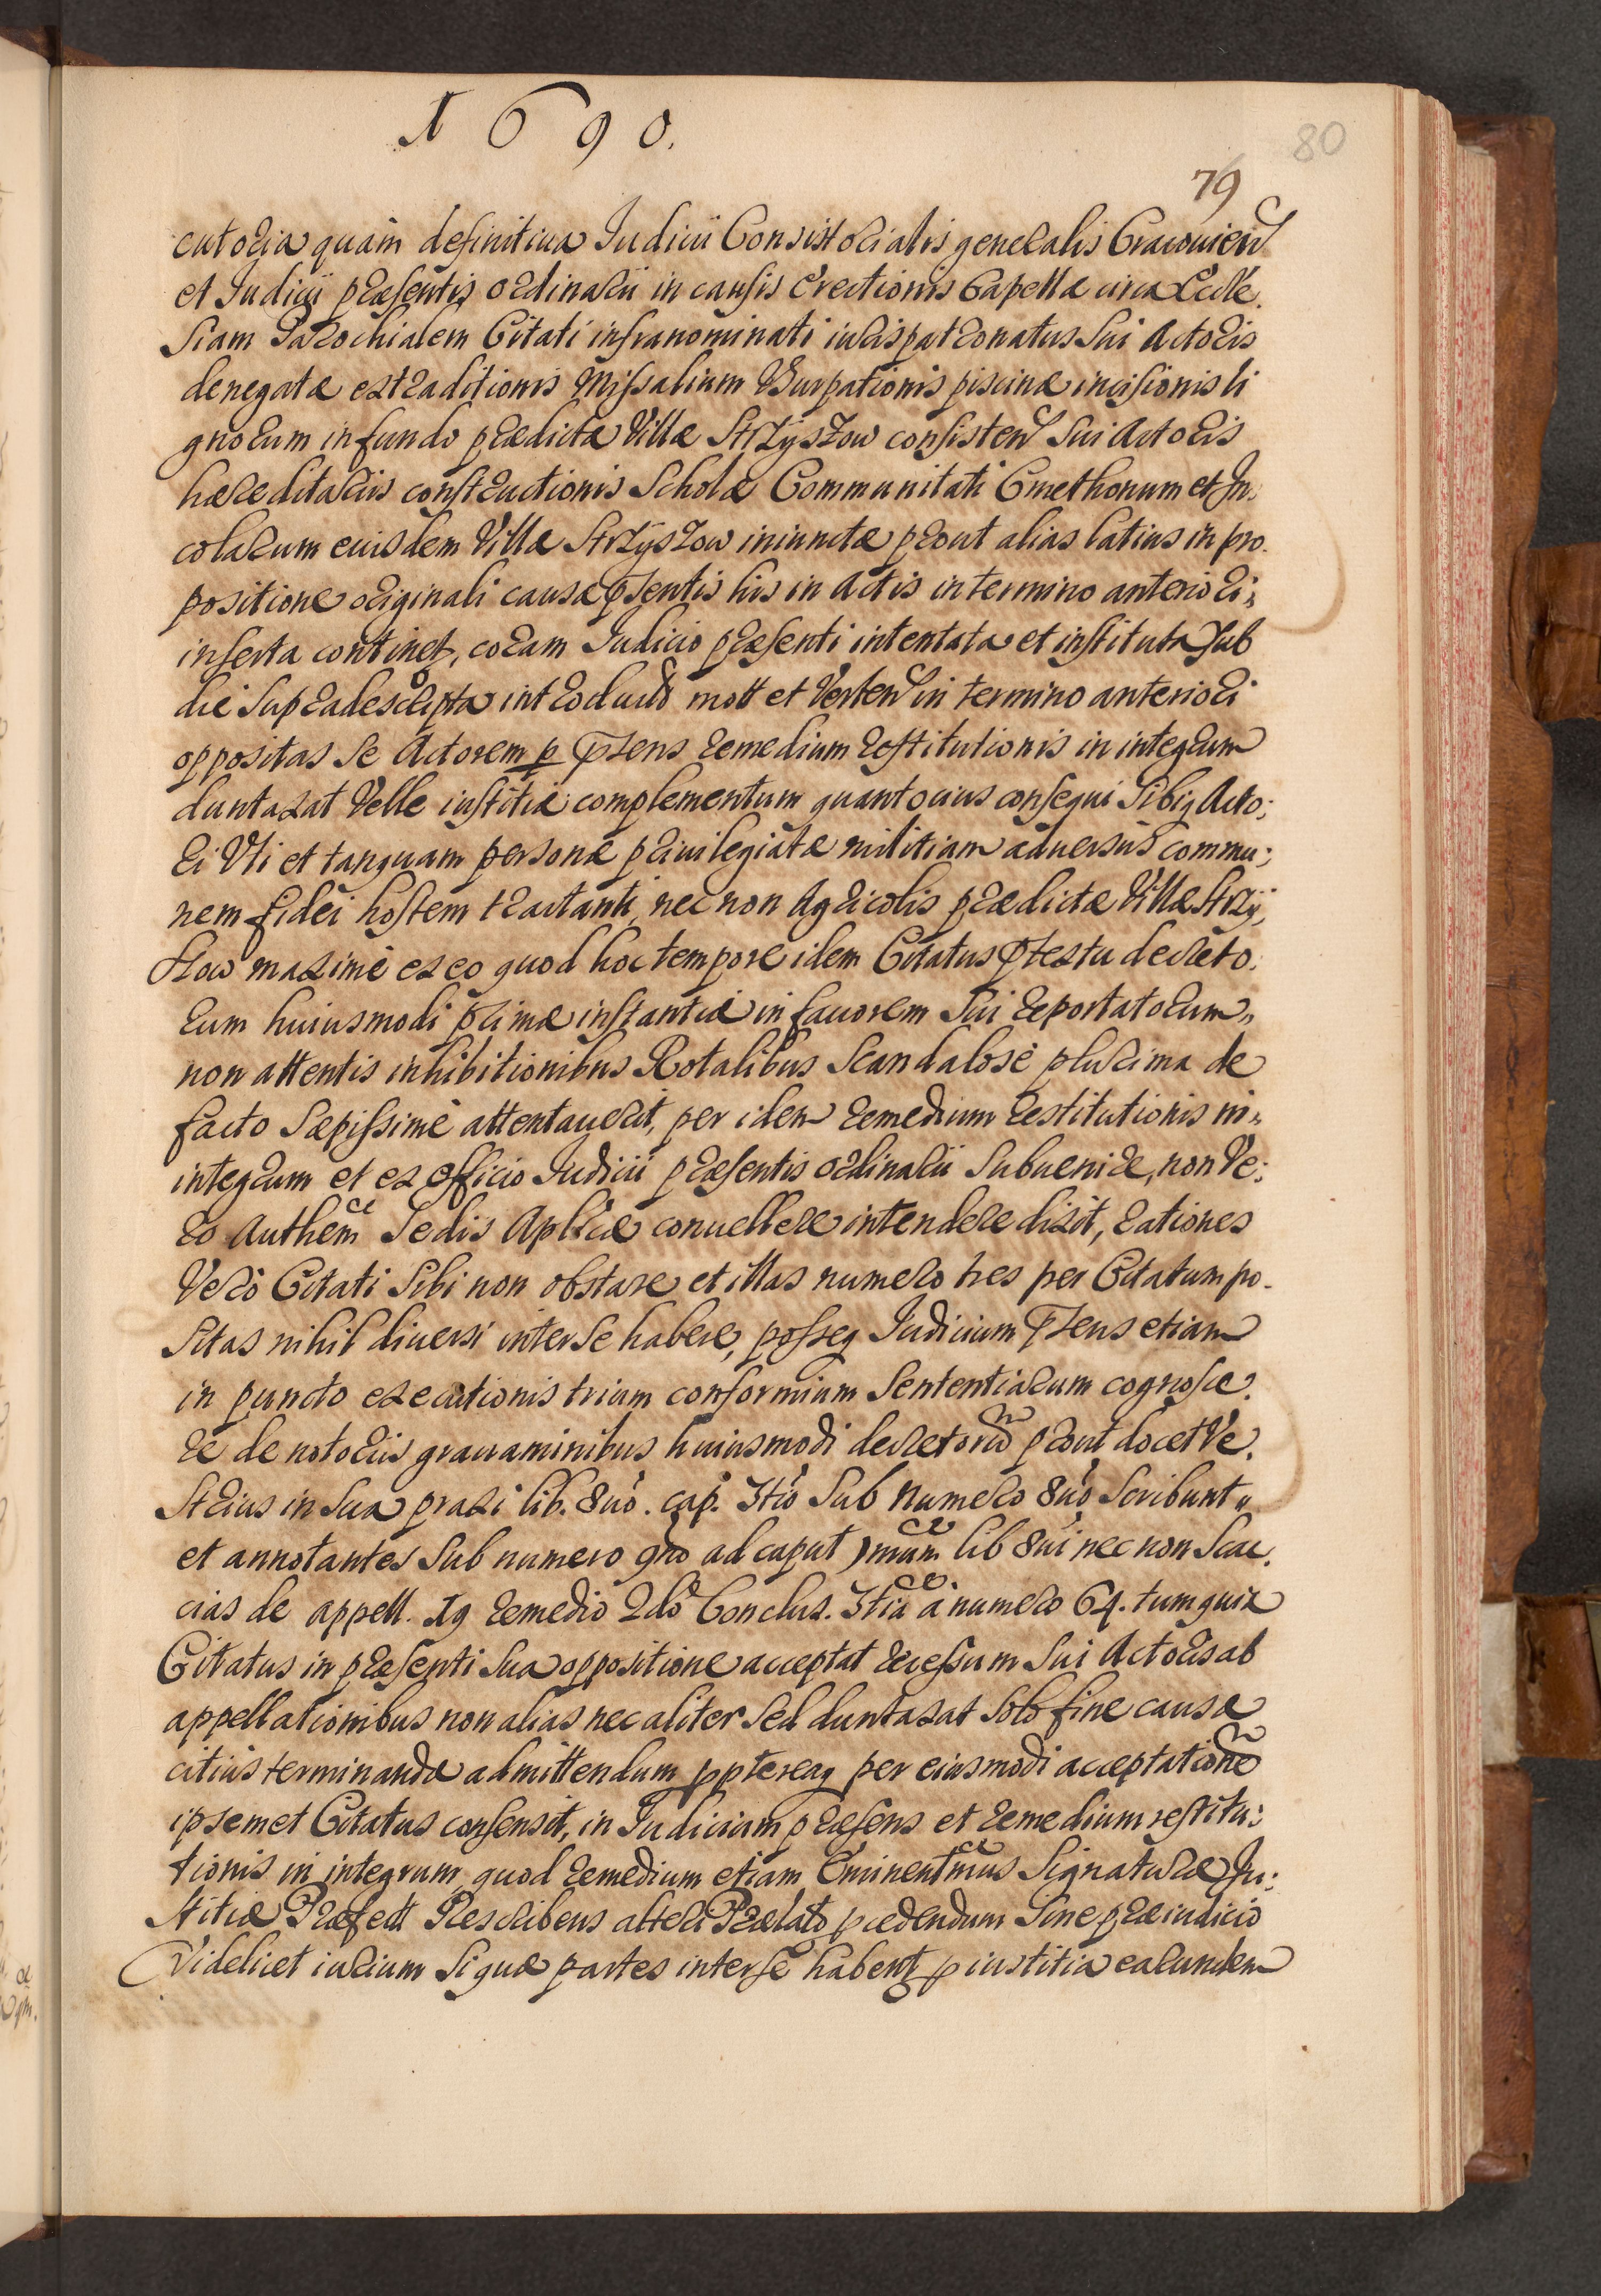 1690.
80
79
cutoria quàm definitiua Iudicii Consistorialis generalis Cracouien
et Iudicii præsentis ordinarii in causis Erectionis Capellæ circa Eccle.
siam Parochialem Citati infranominati iurispatronatus sui Actoris
denegatæ extraditionis Missalium Vsurpationis piscinæ incisionis li
gnorum in fundo prædictæ Villæ Strzyszow consisten sui Actoris
hæreditariis constructionis Scholæ Communitati Cmethonum et In:
colarum eiusdem Villæ Strzyszow iniunctæ prout alias latius in pro.
positione originali causæ pñtentis his in Actis in termino anteriori
inserta continet, coram Iudicio præsenti intentata et instituta sub
die supradescripta introducto mott et Verten in termino anteriori
oppositas se Actorem p pñsens remedium restitutionis in integrum
duntaxat Velle iustitiæ complementum quantocius consequi sibiq Acto:
ri Vti et tanquam personæ priuilegiatæ militiam aduersus commu:
nem fidei hostem tractanti, nec non Agricolis prædictæ Villæ Strzy:
szow maximè ex eo quod hoc tempore idem Citatus ptextu decreto:
rum huiusmodi primæ instantiæ in fauorem sui reportatorum
non attentis inhibitionibus Rotalibus scandalosè plurima de
facto sæpissimè attentauerit, per idem remedium restitutionis in
integrum et ex officio Iudicii præsentis ordinarii subuenire, non Ve:
ro Authem Sedis Aplicæ conuellere intendere dixit, rationes
Verò Citati sibi non obstare et illas numero tres per Citatum po.
sitas nihil diuersi inter se habere, posseq Iudicium pñsens etiam
in puncto executionis trium conformium sententiarum cognosce.
re de notoriis grauaminibus huiusmodi decretorū prout docet Ve.
strius in sua praxi lib. 8uò. cap. 3tiò sub numero 8uò scribunt
et annotantes sub numero 9nò ad caput 1mum lib 8ui nec non Scac.
cias de appell. 19 remedio 2dò Conclus. 3tia à numero 64. tum quia
Citatus in præsenti sua oppositione acceptat recessum sui Actoris ab
appellationibus non alias nec aliter sed duntaxat solo fine causæ
citius terminandæ admittendum pptereaq per eiusmodi acceptatione
ipsemet Citatus consensit, in Iudicium præsens et remedium restitu:
tionis in integrum quod remedium etiam Eminentmus Signaturæ Iu:
stitiæ Præfect Rescribens alteri Prælato pcedendum sine præiudicio
Videlicet iurium si quæ partes inter se habent p iustitia earundem